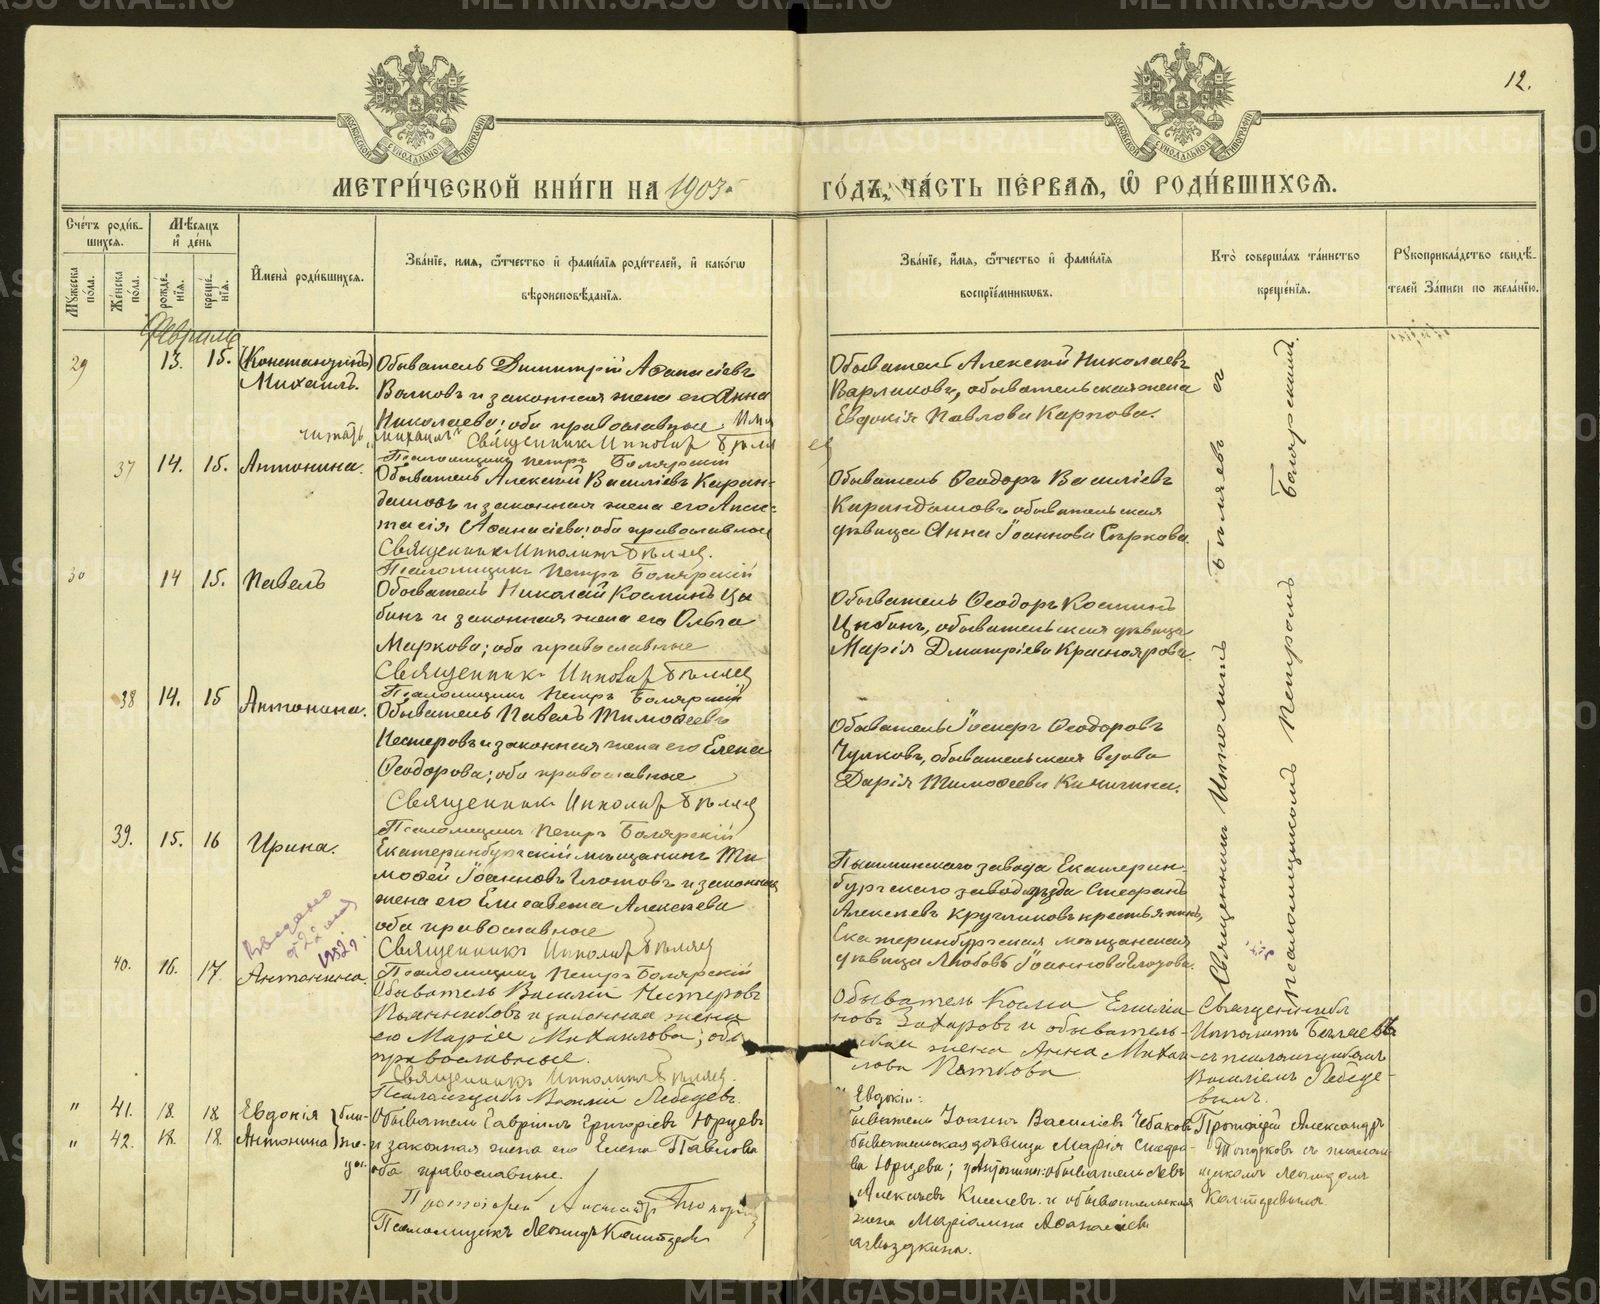 12.
МОСКОВСКОЙ СѴНОДАЛЬНОЙ ТИПОГРАФІИ
МОСКОВСКОЙ СѴНОДАЛЬНОЙ ТИПОГРАФІИ
МЕТРИ́ЧЕСКОЙ КНИ́ГИ НА 1903
ГО́ДЪ, ЧА́СТЬ ПЕ́РВАЯ, Ѽ РОДИ́ВШИХСЯ.
Сче́тъ роди́в-
шихся.
Мѣ́сяцъ
и де́нь
Мꙋ́жеска по́ла.
Же́нска по́ла.
рожде́-нїя.
креще́-нїя.
И҆мена̀ роди́вшихся.
Зва́нїе, имя, ѻ҆́тчество и҆ фами́лїя роди́телей, и҆ како́гѡ
вѣроисповѣ́данїя.
Зва́нїе, и҆́мя, ѻ҆́тчество и҆ фами́лїя
воспрїе́мникѡвъ.
Кто̀ соверша́лъ та́инство
креще́нїя.
Рꙋкоприкла́дство свидѣ́-
телей За́писи по жела́нїю.
Февраль
29 13. 15. (Константинъ) Михаилъ.
Обыватель Димитрій Аѳанасіевъ
Волковъ и законная жена его Анна
Николаева; оба православные Имя
читать „Михаилъ“ Священникъ Ипполитъ Бѣляев
Псаломщикъ Петръ Болярскій
Обыватель Алексій Николаевъ
Варлаковъ, обывательская жена
Евдокія Павлова Карпова.
37 14. 15. Антонина.
Обыватель Алексій Василіевъ Каран-
дашовъ и законная жена его Анас-
тасія Аѳанасіева; оба православные
Священникъ Ипполитъ Бѣляев.
Псаломщикъ Петръ Болярскій
Обыватель Ѳеодоръ Василіевъ
Карандашовъ обывательская
дѣвица Анна Іоаннова Сѣркова.
30 14 15. Павелъ
Обыватель Николай Космин Цы
бинъ и законная жена его Ольга
Маркова; оба православные
Священникъ Ипполитъ Бѣляев
Псаломщикъ Петръ Болярскій
Обыватель Ѳеодоръ Косминъ
Цыбинъ, обывательская дѣвица
Марія Дмитріева Красноярова.
38 14. 15 Антонина.
Обыватель Павелъ Тимоѳеевъ
Нестеровъ и законная жена его Елена
Ѳеодорова; оба православные
Священникъ Ипполитъ Бѣляев
Псаломщикъ Петръ Болярскій
Обыватель Іосифъ Ѳеодоровъ
Чулковъ, обывательская вдова
Дарія Тимоѳеева Кичигина.
39. 15. 16 Ирина.
Екатеринбургскій мѣщанинъ Ти
моѳей Іоанновъ Глотовъ и законная
жена его Елисавета Алексѣева
оба православные
Священникъ Ипполитъ Бѣляев
Псаломщикъ Петръ Болярскій
Пышминскаго завода Екатерин-
бургскаго завод уѣзда Стефанъ
Алексѣевъ Кругликовъ крестьянинъ,
Екатеринбургская мѣщанская
дѣвица Любовь Іоаннова Глотова.
1952г.
40. 16. 17. Антонина.
Обыватель Василій Нестеровъ
Пьянниковъ и законная жена
его Марія Михаилова; оба
православные.
Священникъ Ипполитъ Бѣляев.
Псаломщикъ Василій Лебедевъ.
Обыватель Косма Емилiа
новъ Захаровъ и обыватель-
жена Анна Михаи-
лова Пяткова
Священникъ Ипполитъ Бѣляевъ съ
псаломщикомъ Петромъ Болярскимъ.
Священникъ
Ипполитъ Бѣляевъ
съ псаломщикомъ
Василіемъ Лебеде-
вымъ.
" 41. 18. 18. Евдокія } близ-
" 42. 18. 18. Антонина } не-
цы.
Обыватель Гавріилъ Григоріевъ Юрцевъ
и законная жена его Елена Павлова
оба православные.
Протоіерей Александръ
Псаломщикъ Леонидъ
Евдокіи:
быватель Іоаннъ Василіевъ Чебаковъ
бывательская дѣвица Марія Стефа-
ва Юрцева; у Антонины: обыватель Левъ
Алексѣевъ Киселевъ и обывательская
жена Маріамна Аѳанасіева
Протоіерей Александръ
съ псалом-
щикомъ Леонидомъ